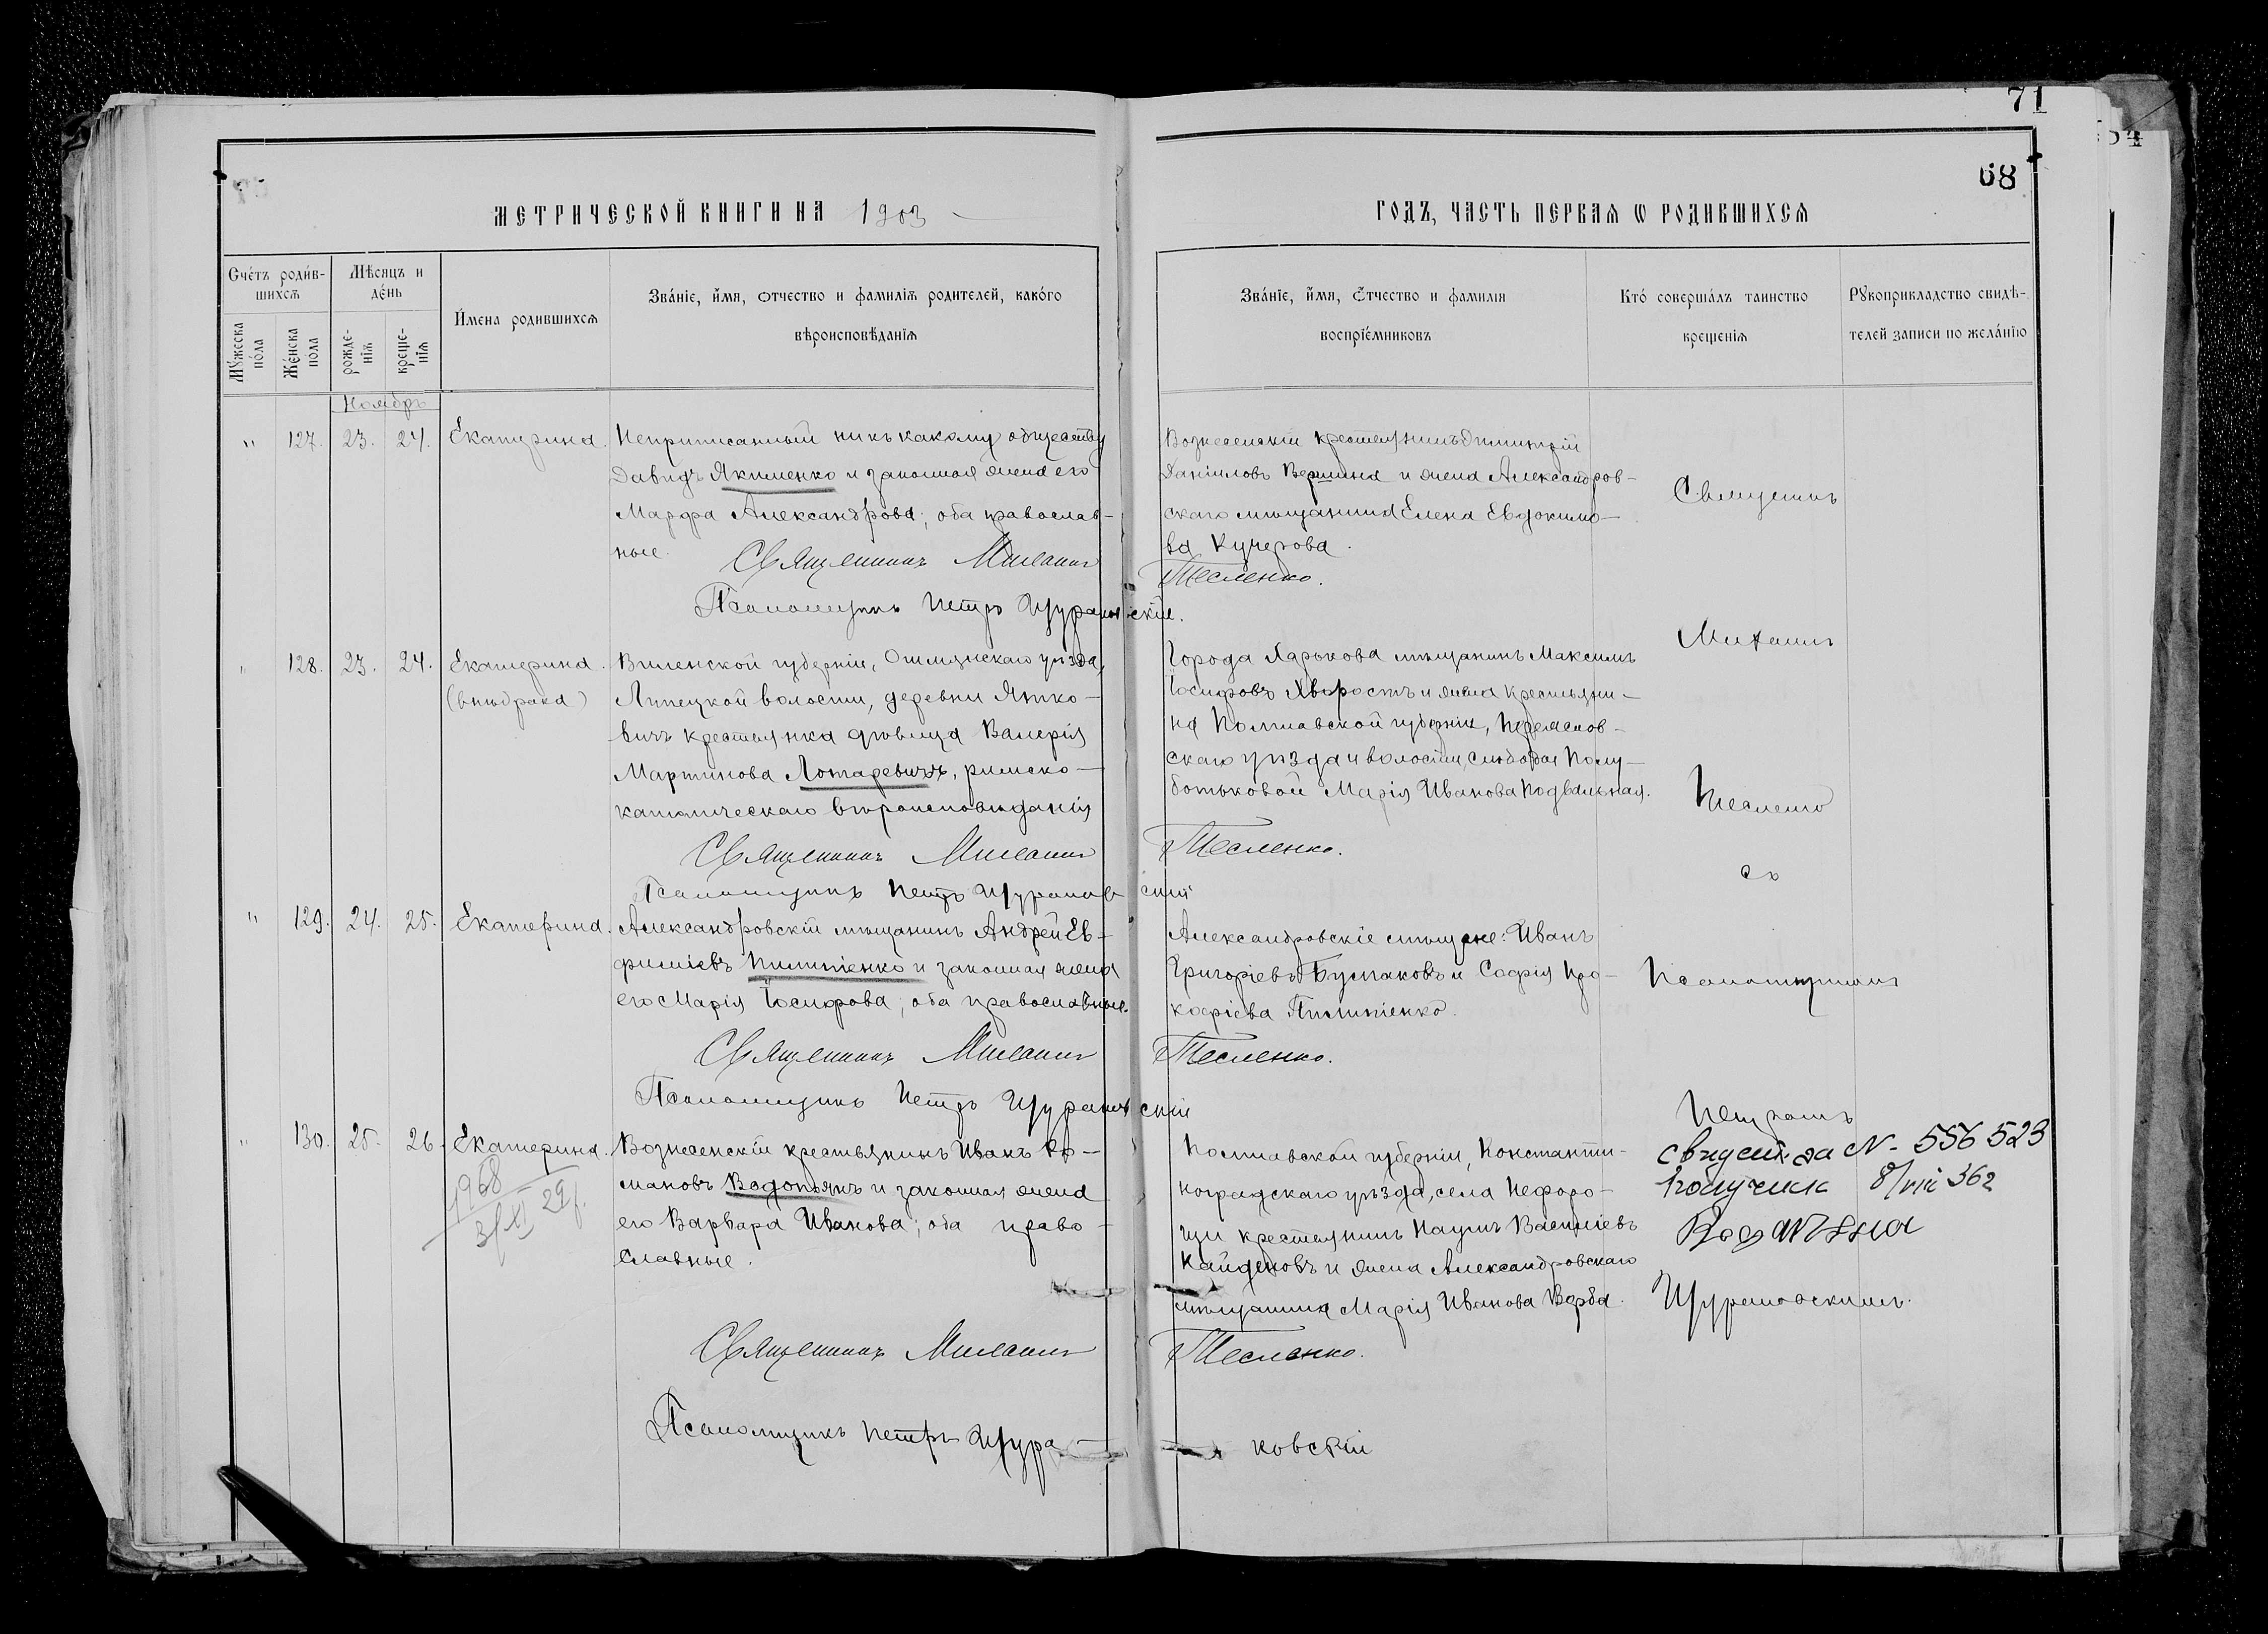 71
54
68
МЕТРИЧЕСКОЙ КНИГИ НА 1903
ГОДЪ, ЧАСТЬ ПЕРВАЯ Ѡ РОДИВШИХСЯ
Счетъ родив-
шихся
Мѣсяцъ и
день
Имена родившихся
Званіе, имя, отчество и фамилія родителей, какого
вѣроисповѣданія
Мужеска
пола
Женска
пола
рожде-
нія
креще-
нія
Званіе, имя, отчество и фамилія
воспріемниковъ
Кто совершалъ таинство
крещенія
Рукоприкладство свидѣ-
телей записи по желанію
Ноябрь
" 127. 23. 24. Екатерина.
Неприписанный ни къ какому обществу
Давидъ Якименко и законная жена его
Марфа Александрова; оба православ-
ные.
Священникъ Михаилъ Тесленко.
Псаломщикъ Петръ Щурановскій.
Вознесенскій крестьянинъ Димитрій
Даніиловъ Вершина и жена Александров-
скаго мѣщанина Елена Евдокимо-
ва Кучерова.
" 128. 23. 24. Екатерина.
(внѣбрака)
Виленской губерніи, Ошмянскаго уѣзда,
Липецкой волости, деревни Янко-
вичъ крестьянка дѣвица Валерія
Мартинова Лотаревичъ, римско-
католическаго вѣроисповѣданія
Священникъ Михаилъ Тесленко.
Псаломщикъ Петръ Щурановскій
Города Харькова мѣщанинъ Максимъ
Іосифовъ Хворостъ и жена крестьяни-
на Полтавской губерніи, Переяслов-
скаго уѣзда и волости, слободы Полу-
ботьковой Марія Иванова Подвальная.
" 129. 24. 25. Екатерина.
Александровскій мѣщанинъ Андрей Ев-
фиміевъ Пилипенко и законная жена
его Марія Іосифова; оба православные.
Священникъ Михаилъ Тесленко.
Псаломщикъ Петръ Щурановскій
Александровскіе мѣщане: Иванъ
Григоріевъ Бурлаковъ и Софія Про-
кофіева Пилипенко.
" 130. 25. 26. Екатерина.
1968
3/XI 29
Вознесенскій крестьянинъ Иванъ Ро-
мановъ Водопьянъ и законная жена
его Варвара Иванова; оба право-
славные.
Священникъ Михаилъ Тесленко.
Псаломщикъ Петръ Щура-
ковскій
Полтавской губерніи, Константи-
ноградскаго уѣзда, села Нефоро-
щи крестьянинъ Наумъ Василіевъ
Кайдановъ и жена Александровскаго
мѣщанина Марія Иванова Верба.
Священникъ
Михаилъ
Тесленко
съ
Псаломщикомъ
Петромъ
Щурановскимъ.
свидет. за N- 556523
8/VIII 36г